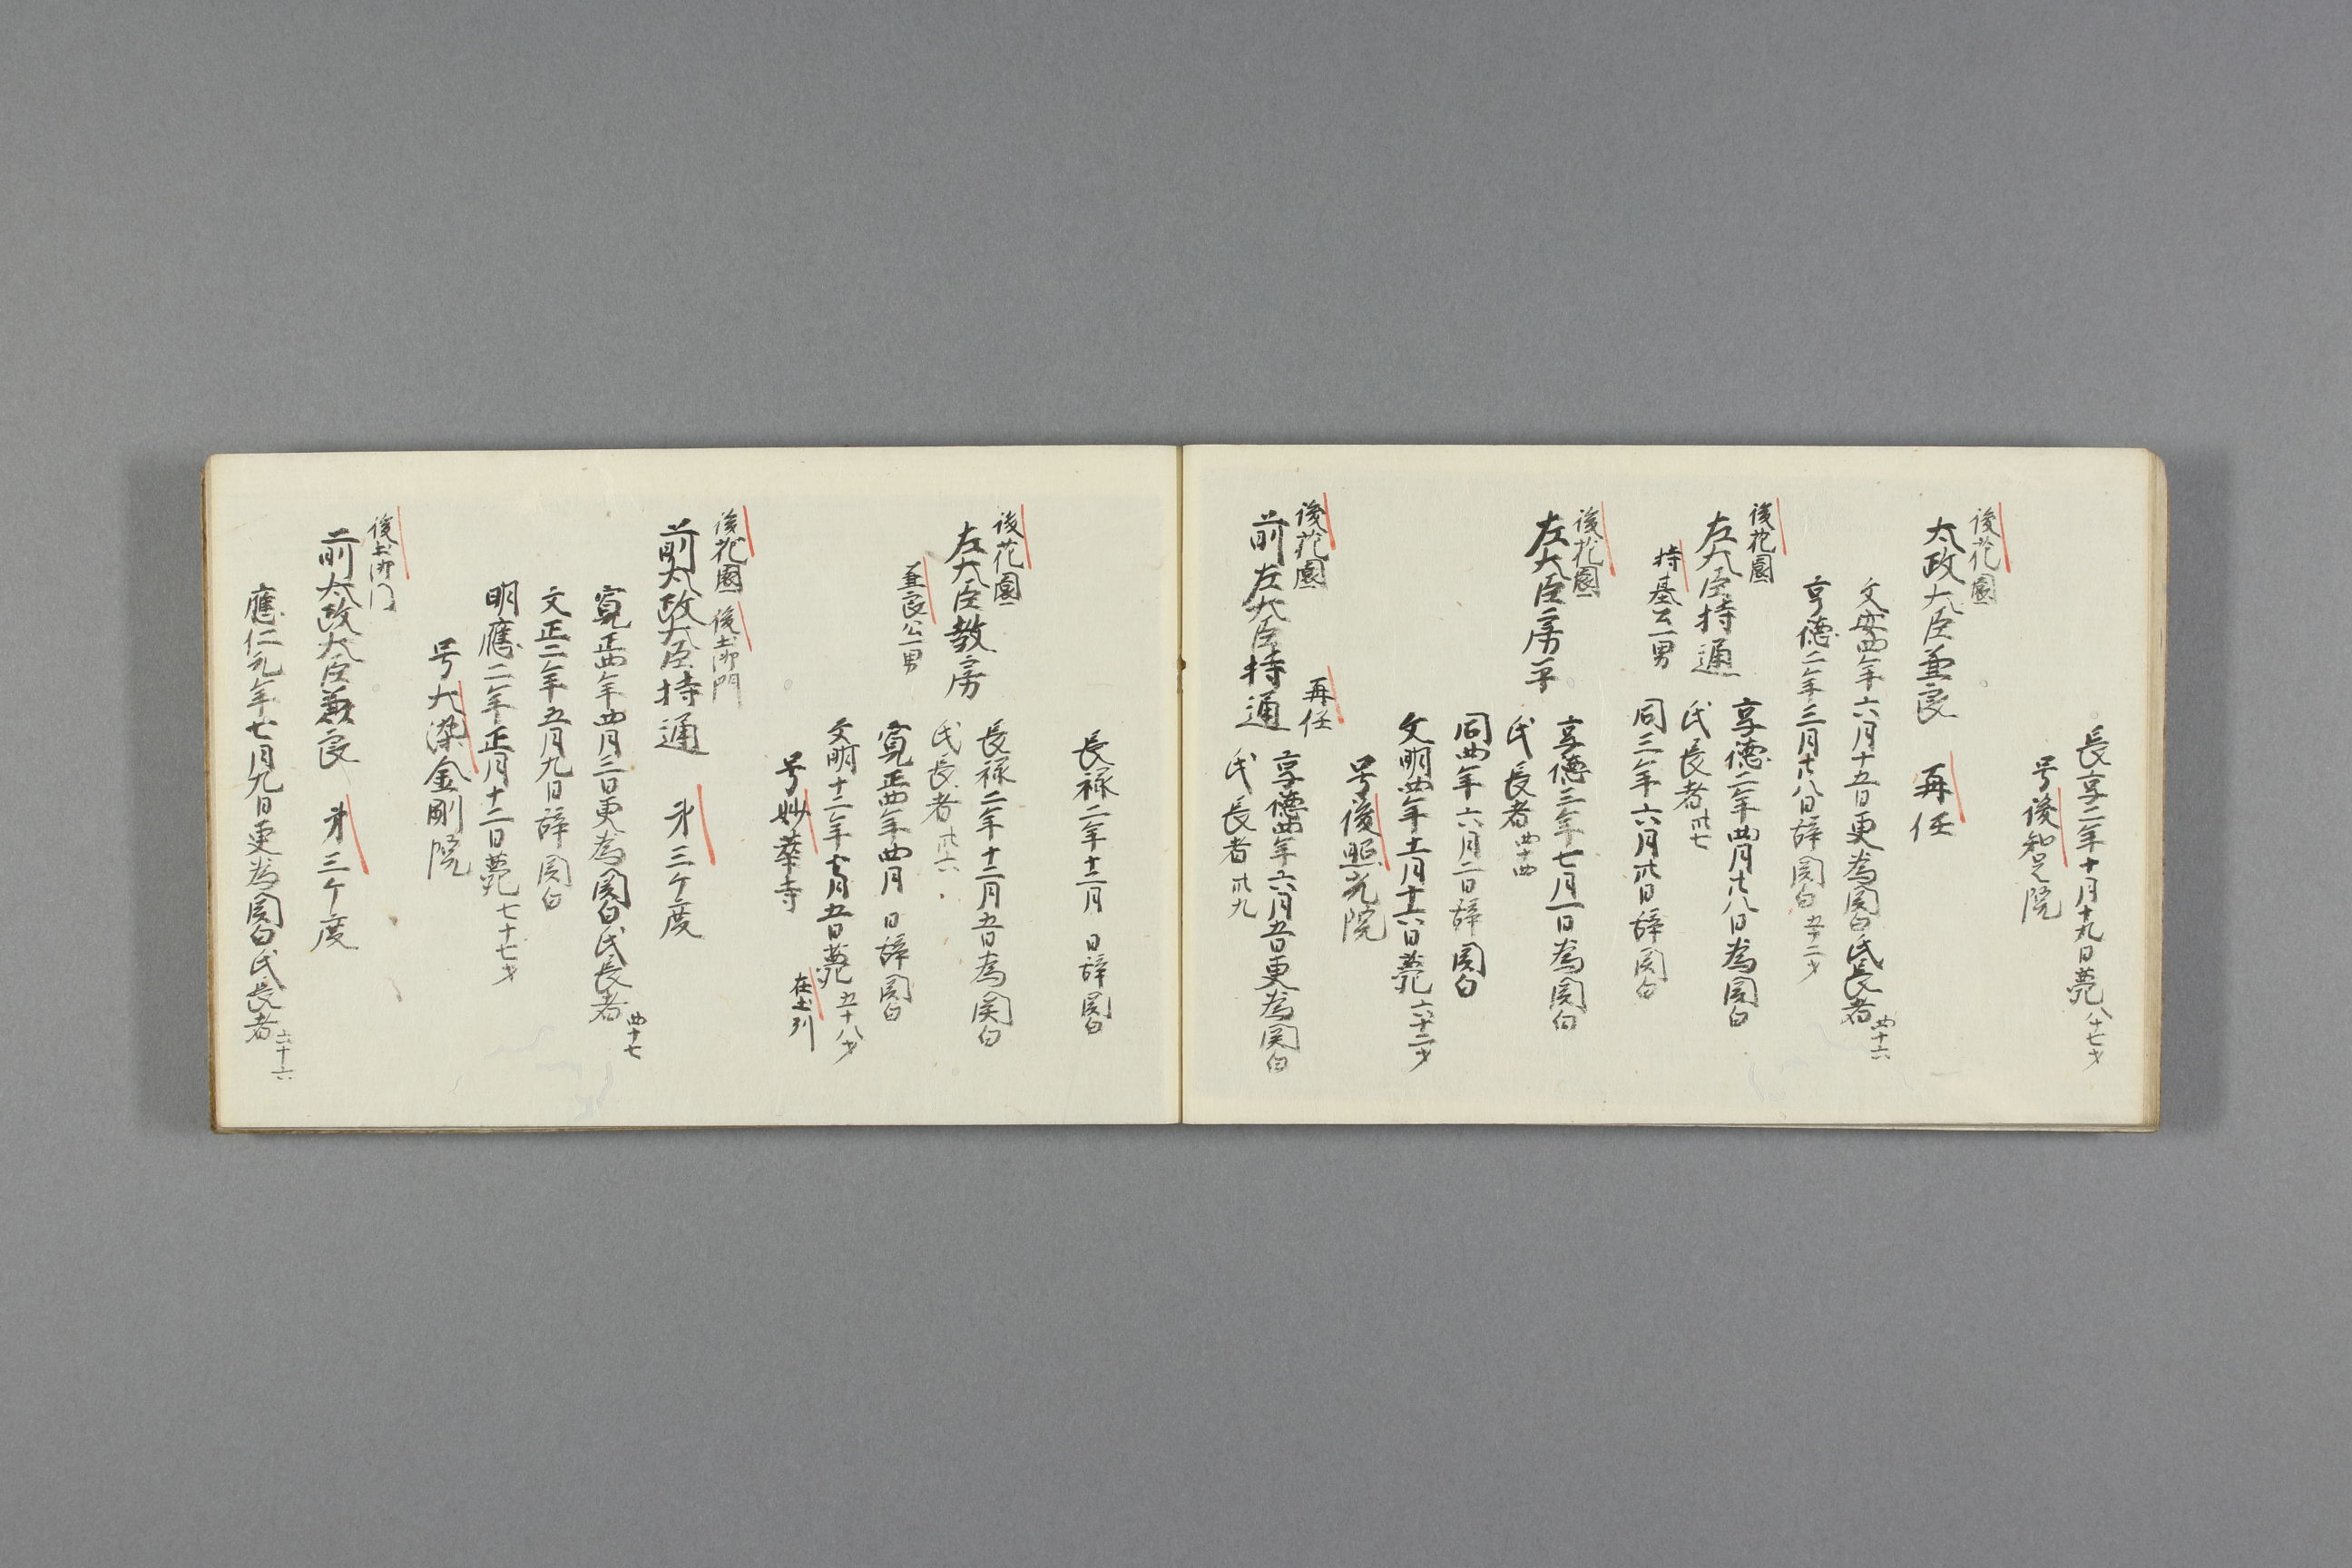 長享二年十月十九日薨八十七才
号後知足院
後花園
太政大臣兼良　再任
文安四年六月十五日更為関白氏長者四十六
亨徳二年三月廿八日辞関白五十二才
後花園
左大臣持通
享徳二年四月廿八日為関白
氏長者卅七
持基公一男
同三年六月卅日辞関白
後花園
左大臣房平
享徳三年七月一日為関白
氏長者四十四
同四年六月二日辞関白
文明四年十一月十六日薨六十二才
号後照光院
後花園
再任
前左大臣持通
享徳四年六月五日更為関白
氏長者卅九
長禄二年十二月　日辞関白
後花園
左大臣教房
長禄二年十二月五日為関白
氏長者卅六
兼良公一男
寛正四年四月　日辞関白
文明十二年十月五日薨五十八才
号妙華寺
在土列
後花園　後土御門
前太政大臣持通　才三ケ度
寛正四年四月三日更為関白氏長者四十七
文正二年五月九日辞関白
明應二年正月十二日薨七十七才
号大染金剛院
後土御门
前太政大臣兼良　才三ケ度
應仁元年七月九日更為関白氏長者六十六